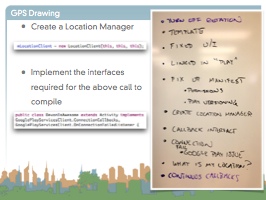 GPS Drawing
• Create a Location Manager
mLocationClient = new LocationClient(this, this, this);
• Implement the interfaces
required for the above call to
compile
public class DecorinAwesome extends Activity implements
GooglePlayServicesClient.ConnectionCallbacks,
GooglePlayServicesClient.OnConnectionFailedListener {
• TURN OFF ROTATION
• TEMPLATE
• FIXED U/I
• LINKED IN "PLAY"
• FIX UP MANIFEST
• PERMISSIONS
• PLAY VERSIONING
• CREATE LOCATION MANAGER
• CALLBACK INTERFACE
• CONNECTION
FAIL
• GOOGLE PLAY ISSUE
• WHAT IS MY LOCATION?
• CONTINUOUS CALLBACKS